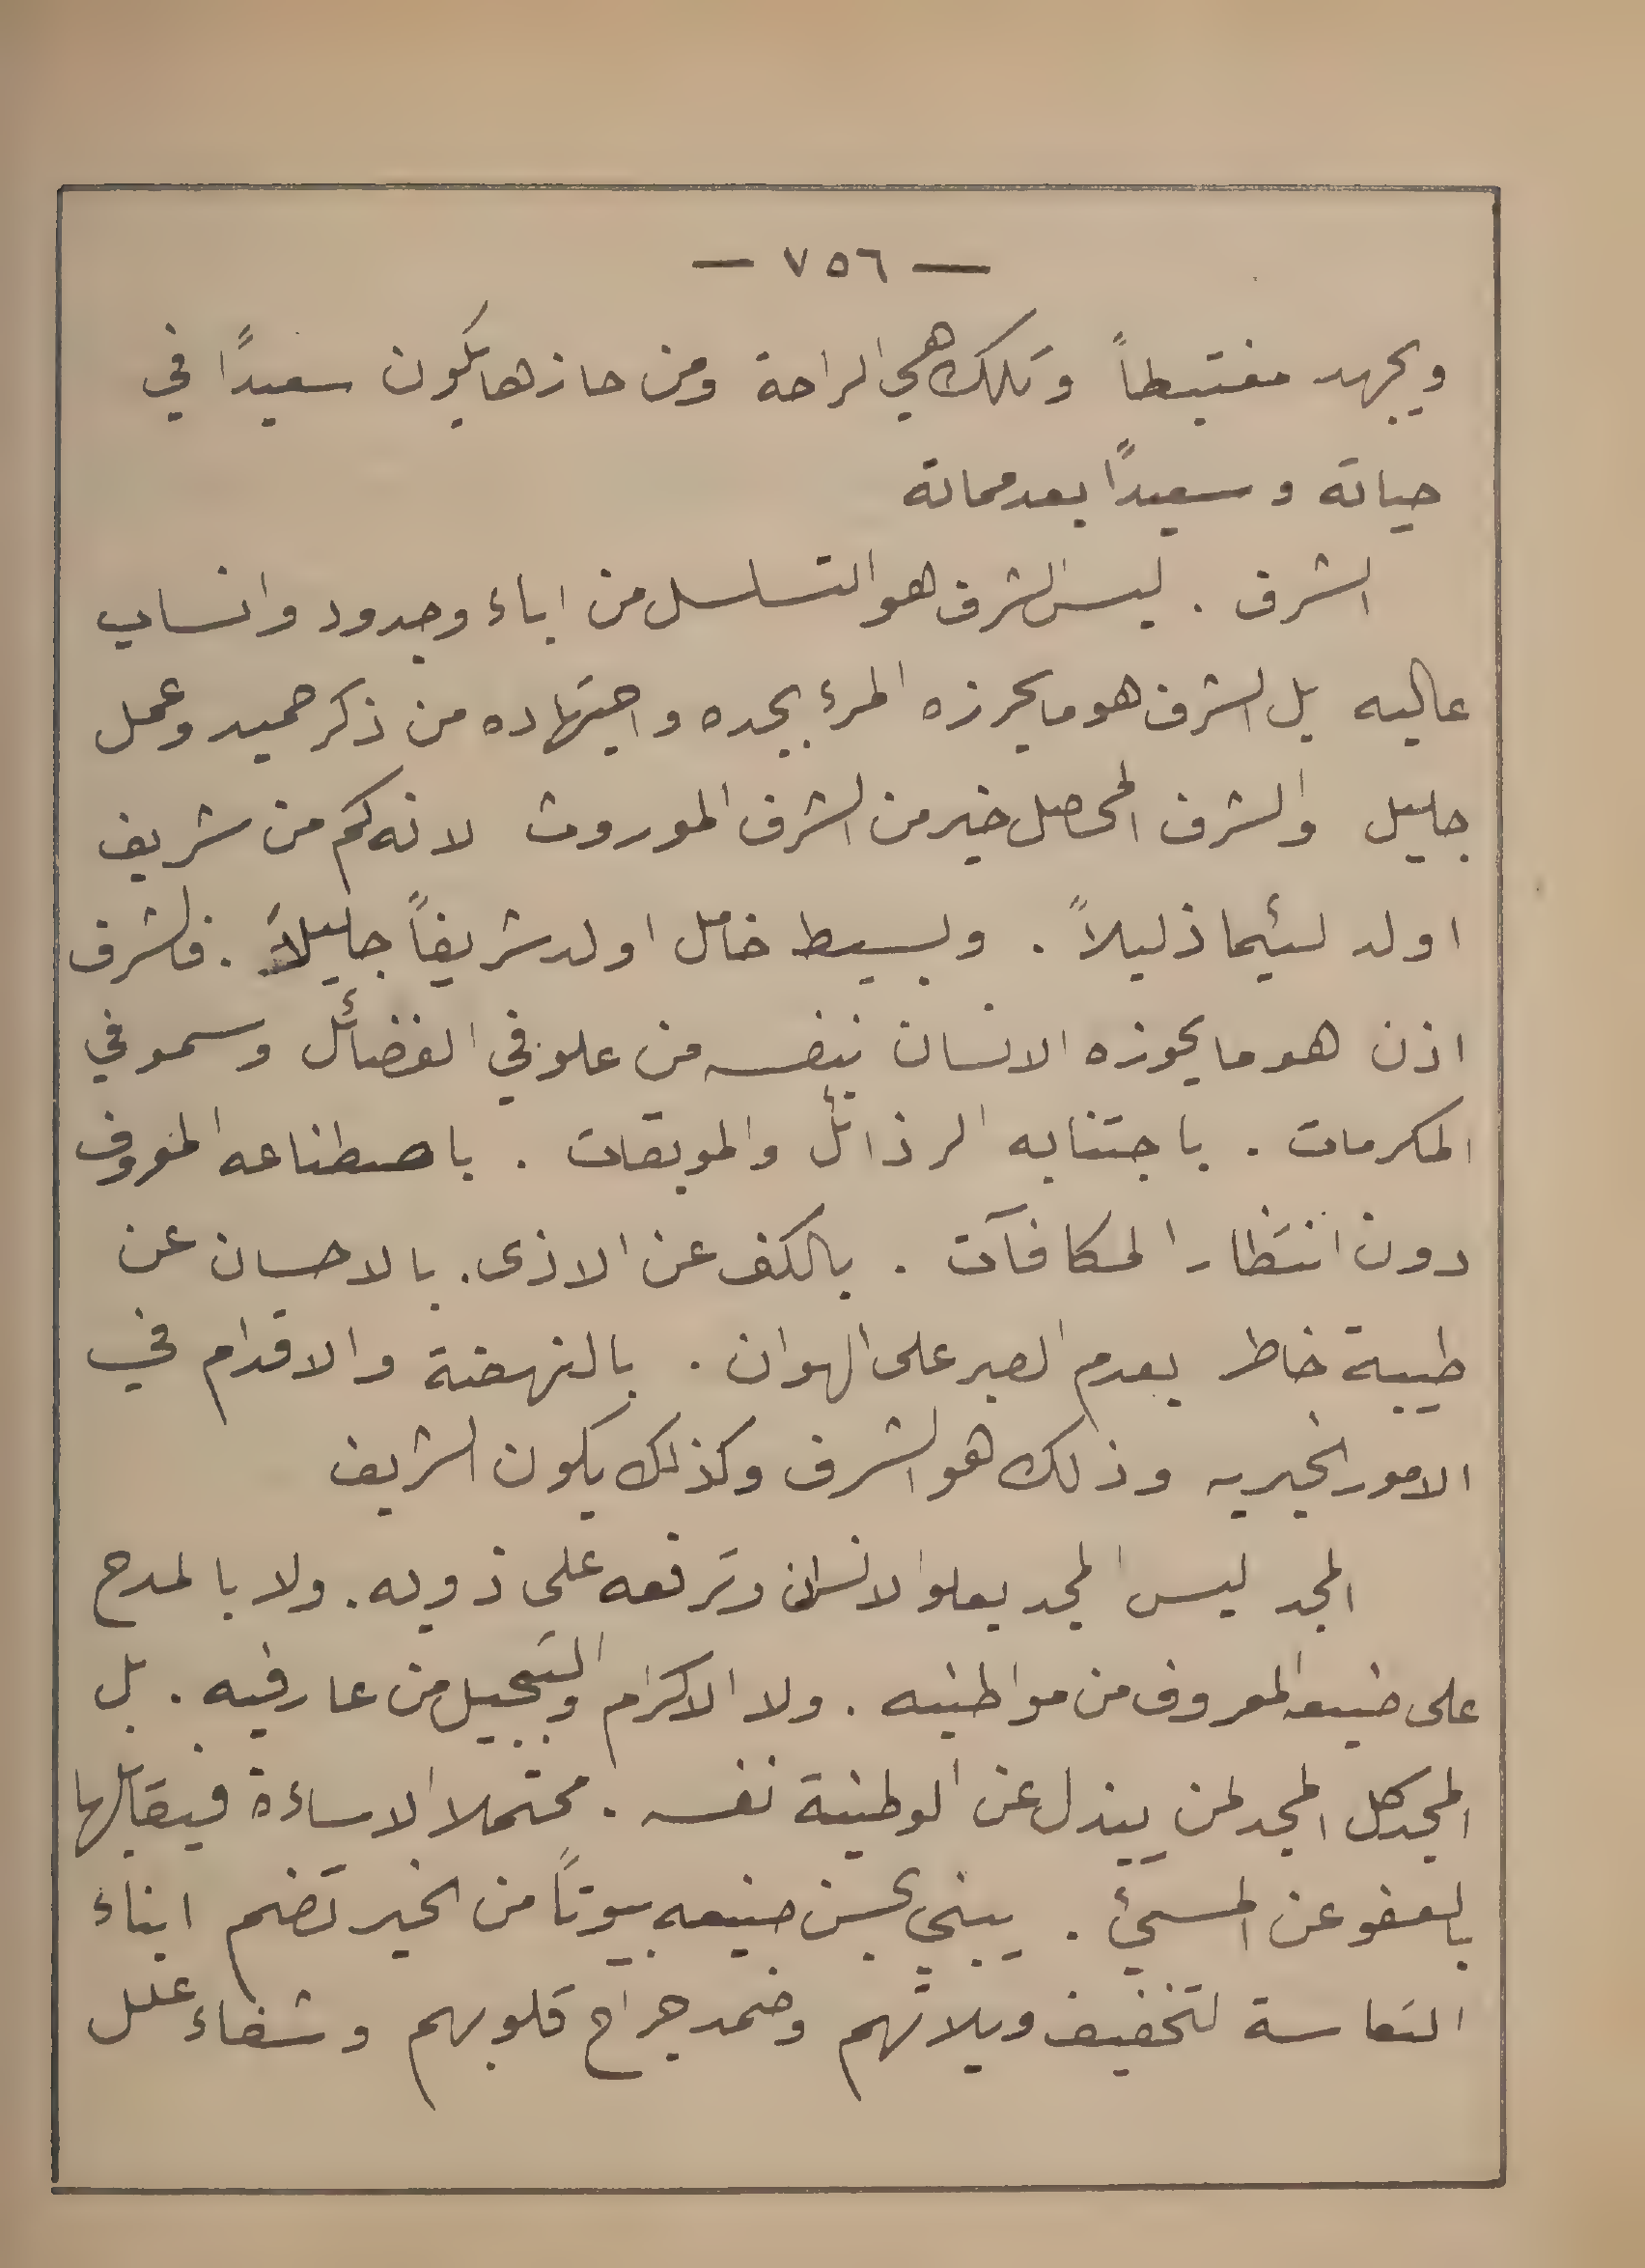 — ٧٥٦ —
ويجهد مغتبطاً وتلك هي الراحة ومن حازها يكون سعيدًا في
حياتة وسعيدًا بعد مماتة
الشرف . ليس الشرف هو التسلسل من اباء وجدود وانساب
عاليه بل الشرف هو ما يحرزه المرء بجده واجتهاده من ذكر حميد وعمل
جليل والشرف المحاصل خير من الشرف الموروث لانه كم من شريف
اولد لئيما ذليلاً . وبسيط خامل اولد شريفاً جليلاً . فالشرف
اذن هو ما يحوزه الانسان بنفسه من علو في الفضائل وسمو في
المكرمات . باجتنابه الرذائل والموبقات . باصطناعه المعروف
دون انتظار المكافآت . بالكف عن الاذى . بالاحسان عن
طيبة خاطر بعدم الصبر على الهوان . بالنهضة والاقدام في
الامور الخيريه وذلك هو الشرف وكذلك يكون الشريف
المجد ليس المجد بعلو الانسان وترفعه على ذويه . ولا بالمدح
على صنيعه المعروف من مواطنيه . ولا الاكرام والتبجيل من عارفيه . بل
المجد كل المجد لمن يبذل عن الوطنية نفسه . محتملا الاساءة فيقابلها
بالعفو عن المسيئ . يبني بحسن صنيعه بيوتاً من الخير تضم ابناء
التعاسة لتخفيف ويلاتهم وضمد جراح قلوبهم وشفاء علل